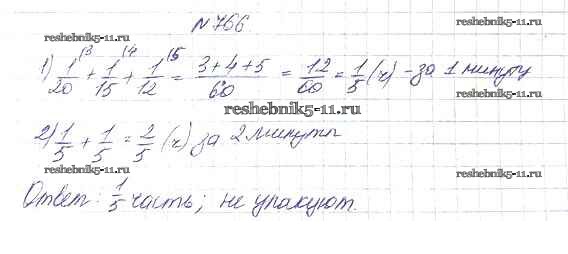 №766
reshebnik5-11.ru reshebnik5-11.ru
1) 1/20 (3 + 1/15 (4 + 1/12 (5 = 3+4+5/60 = 12/60 = 1/5 (ч) - за 1 минуту
reshebnik5-11.ru
2) 1/5 + 1/5 = 2/5 (ч) за 2 минуты
reshebnik5-11.ru reshebnik5-11.ru
Ответ: 1/5 часть; не упакуют.
reshebnik5-11.ru